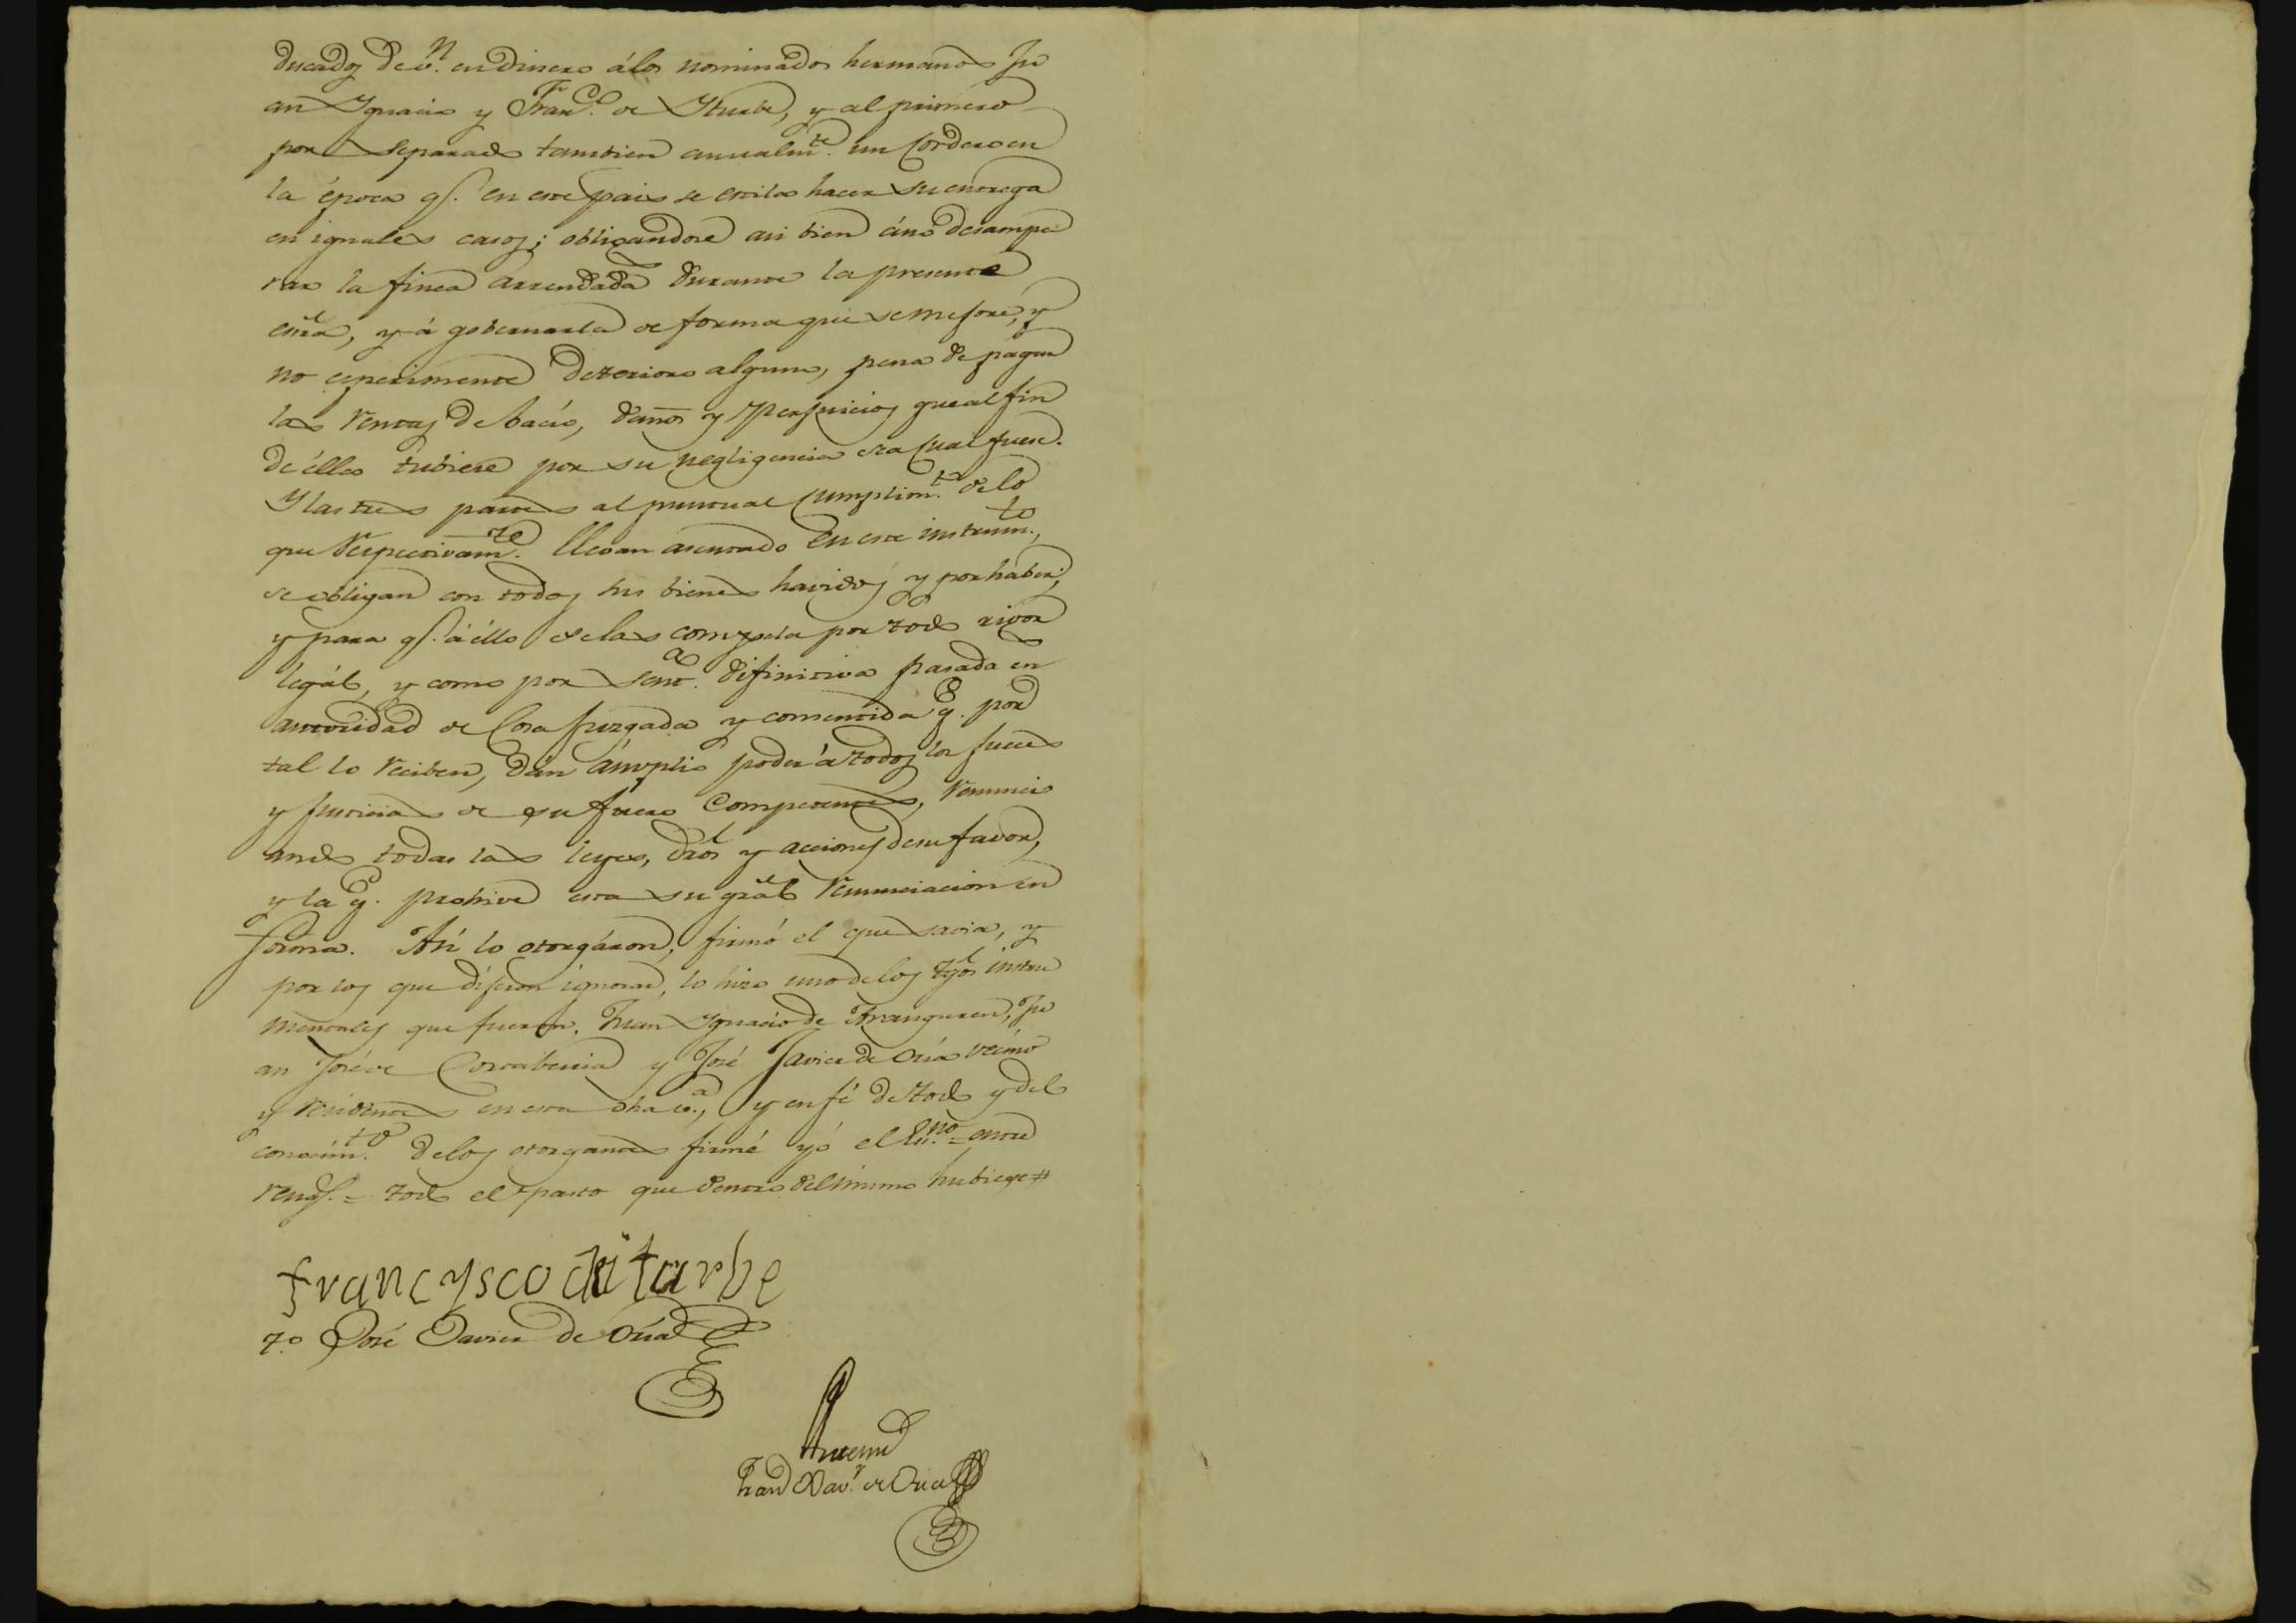 ducados de v.n en dinero á los nominados hermanos Ju
an Ygnacio y Fran.co de Yturbe, y al primero
por separado tambien anualm.te un Cordero en
la época q.e en este pais se estila hacer su entrega
en iguales casos; obligandose asi bien á no desampa
rar la finca arrendada durante la presente
esc̃ra, y á gobernarla de forma que se mejore, y
no esperimente deterioro alguno, pena de pagar
las rentas de bacio, daños y perjuicios que al fin
de éllas tubiese por su negligencia sea cual fuere.
Y las tres partes al puntual cumplim.to de lo
que respectivam.te llevan asentado en este instrum.to,
se obligan con todos sus bienes havidos y por haber;
y para q.e á éllo se las compela por todo rigor
legál, y como por sent.a difinitiva pasada en
autoridad de Cosa juzgada y consentida q.e por
tal lo reciben, dán ámplio poder á todos los jueces
y justicias de su fuero Competentes, renunci
ando todas las leyes, dr̃os y acciones de su favor,
y la q.e prohive esta su gr̃al renunciacion en
forma. Asi lo otorgáron, firmó el que savia, y
por los que dijeron ignorar, lo hizo uno de los tgõs instru
mentales que fueron, Juan Ygnacio de Aranguren, Ju
an José de y José Javier de Oria vecino
y residentes en esta dha v.a, y en fé de todo y del
conocim.to de los otorgantes firmé yó el Es.no = entre
reng.s = todo el pasto que dentro del mismo hubiese #
francysco de iturbe
T.o José Javier de Oria
Antemi
Juan Xav.r de Oria